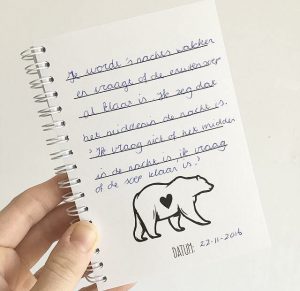 Je wordt 's nachts wakker
en vraagt of de erwtensoep
al klaar is. Ik zeg dat
het midden in de nacht is.
'Ik vraag niet of het midden
in de nacht is, ik vraag
of de soep klaar is.'
DATUM: 22-11-2016